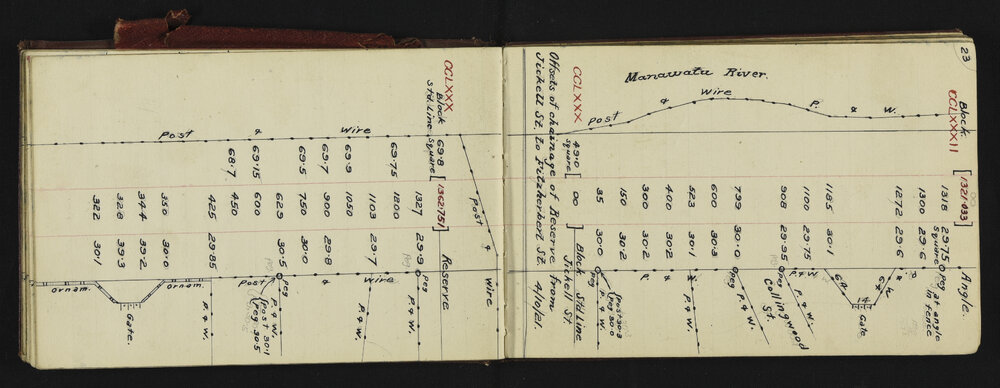 23
Block.
CCLXXXII
[1321·933]
Angle.
1318 29·75 Peg at angle in fence
square
1300 29·6
1272 29·6
P. & W.
Gate
14
1185 30·1
1100 29·75 P. & W.
908 29·95 Peg
Collingwood St.
739 30·0 Peg P. & W.
600 30·3
523 30·1 P. & W.
400 30·2
300 30·2
150 30·2
35 30·0 Peg P. & W.
(post 30·3
(Peg 30·0
Manawatu River.
Post & Wire P. & W.
P. &
CCLXXX
49·0
square
[00]
Block Std Line
Tickell St
Offsets of chainage of Reserve from
Tickell St. to Fitzherbert St. 4/10/21.
Post & Wire
CCLXXX
Block
Std. Line
69·8
square
[1362·751]
Reserve
1327 29·9 Peg P. & W.
69·75 1200
1103 29·7 P. & W.
69·9 1050
69·7 900 29·8
69·5 750 30·0
629 30·5 Peg P. & W.
(post 30·1
(Peg 30·5
69·15 600
68·7 450
425 29·85 P. & W.
350 30·0
344 39·2
328 39·3
322 30·1
Post & Wire
Post & Wire
Ornam.
Gate.
Ornam.